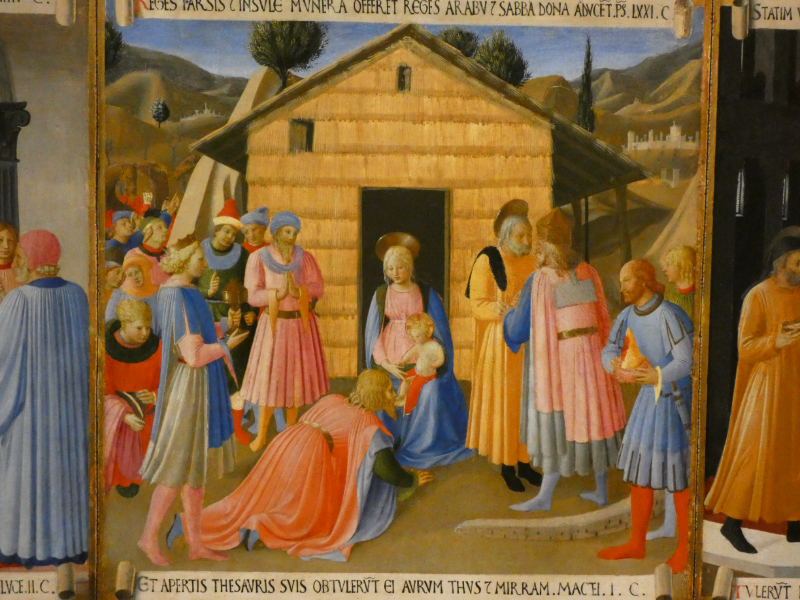 REGES TARSIS ⁊ INSVLE MVNERA OFFERET REGES ARABV ⁊ SABBA DONA ADVCĒT. PS̄. LXXI. C
STATIM
LVCE. II. C.
ET APERTIS THESAVRIS SVIS OBTVLERV̄T EI AVRVM THVS ⁊ MIRRAM. MACEI. I. C.
TVLERV̄T